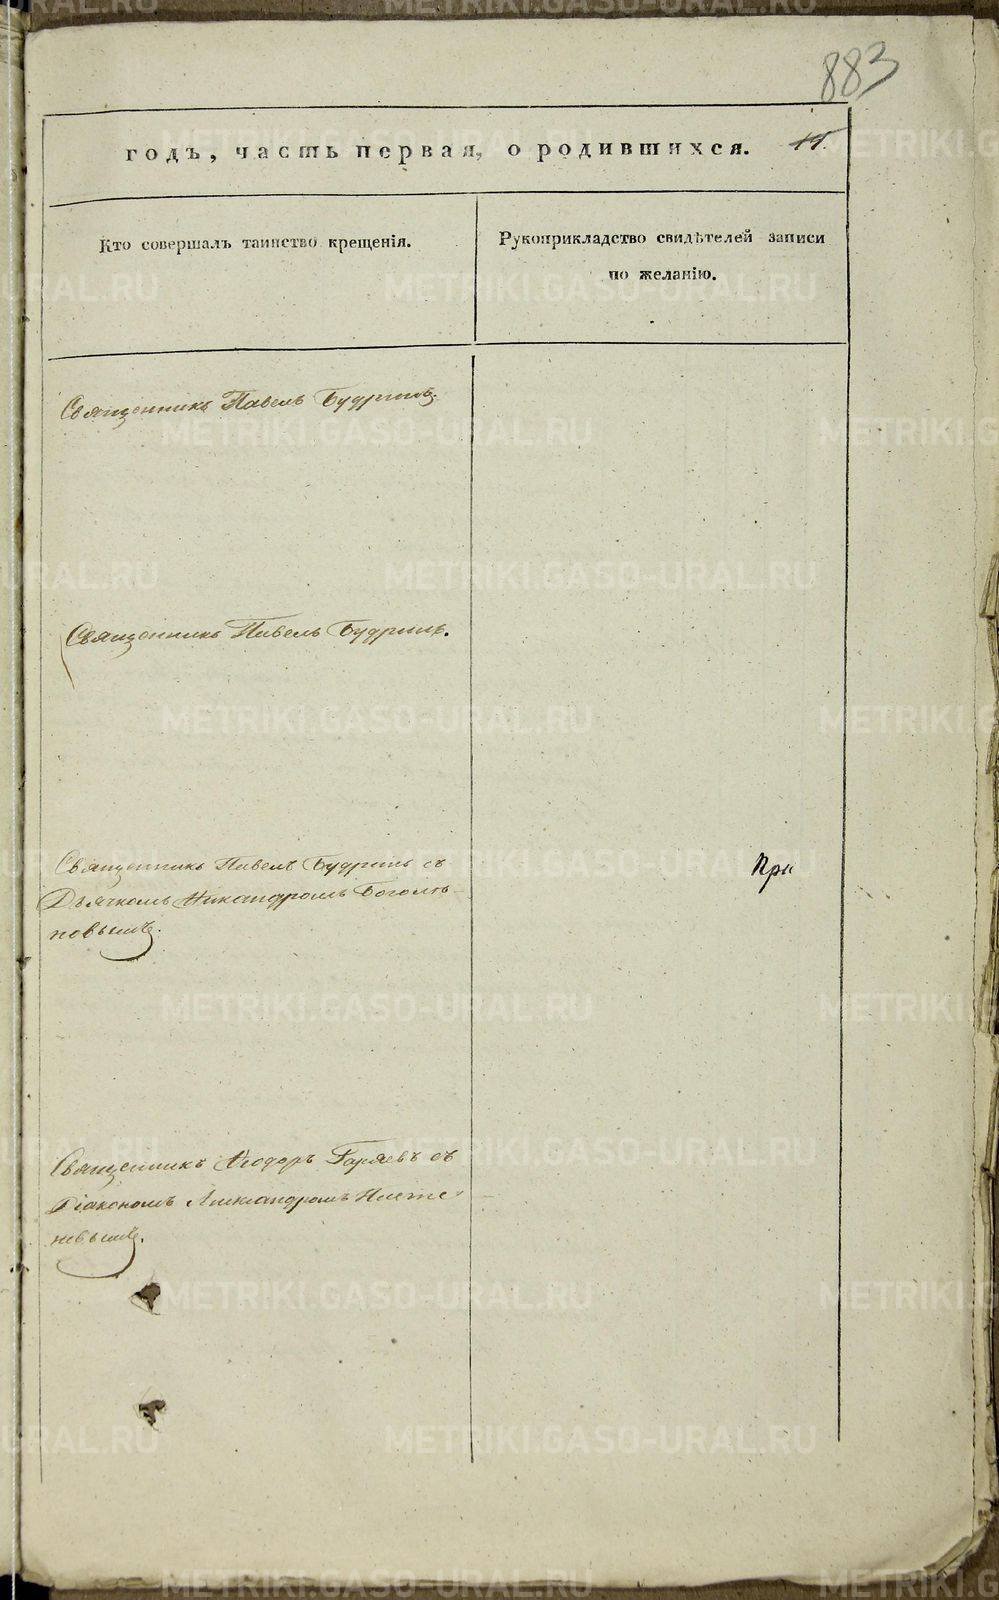 883
годъ, часть первая, о родившихся.
Кто совершалъ таинство крещенія.
Рукоприкладство свидѣтелей записи
по желанію.
Священникъ Павелъ Будринъ.
Священникъ Павелъ Будринъ.
Священникъ Павелъ Будринъ съ
Дьячкомъ Никандромъ Боголѣ-
повымъ.
При
Священникъ Ѳеодоръ Гаряевъ съ
Діакономъ Александромъ
METRIKI.GASO-URAL.RU